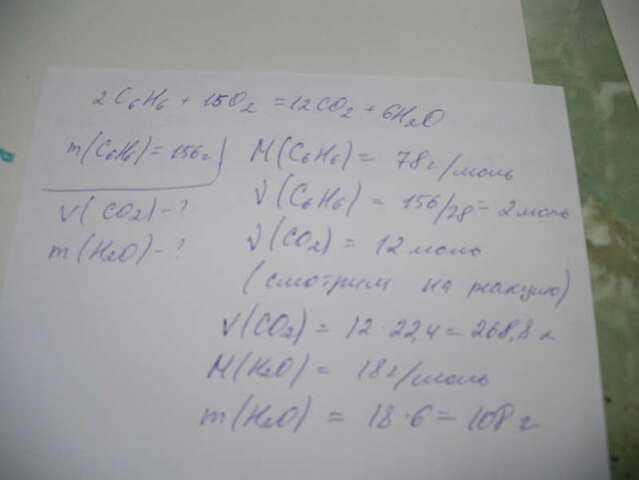 2C₆H₆ + 15O₂ = 12CO₂ + 6H₂O
m(C₆H₆) = 156г
V(CO₂) - ?
m(H₂O) - ?
M(C₆H₆) = 78г/моль
ν(C₆H₆) = 156/78 = 2моль
ν(CO₂) = 12моль
(смотрим на реакцию)
V(CO₂) = 12·22,4 = 268,8л
M(H₂O) = 18г/моль
m(H₂O) = 18·6 = 108г